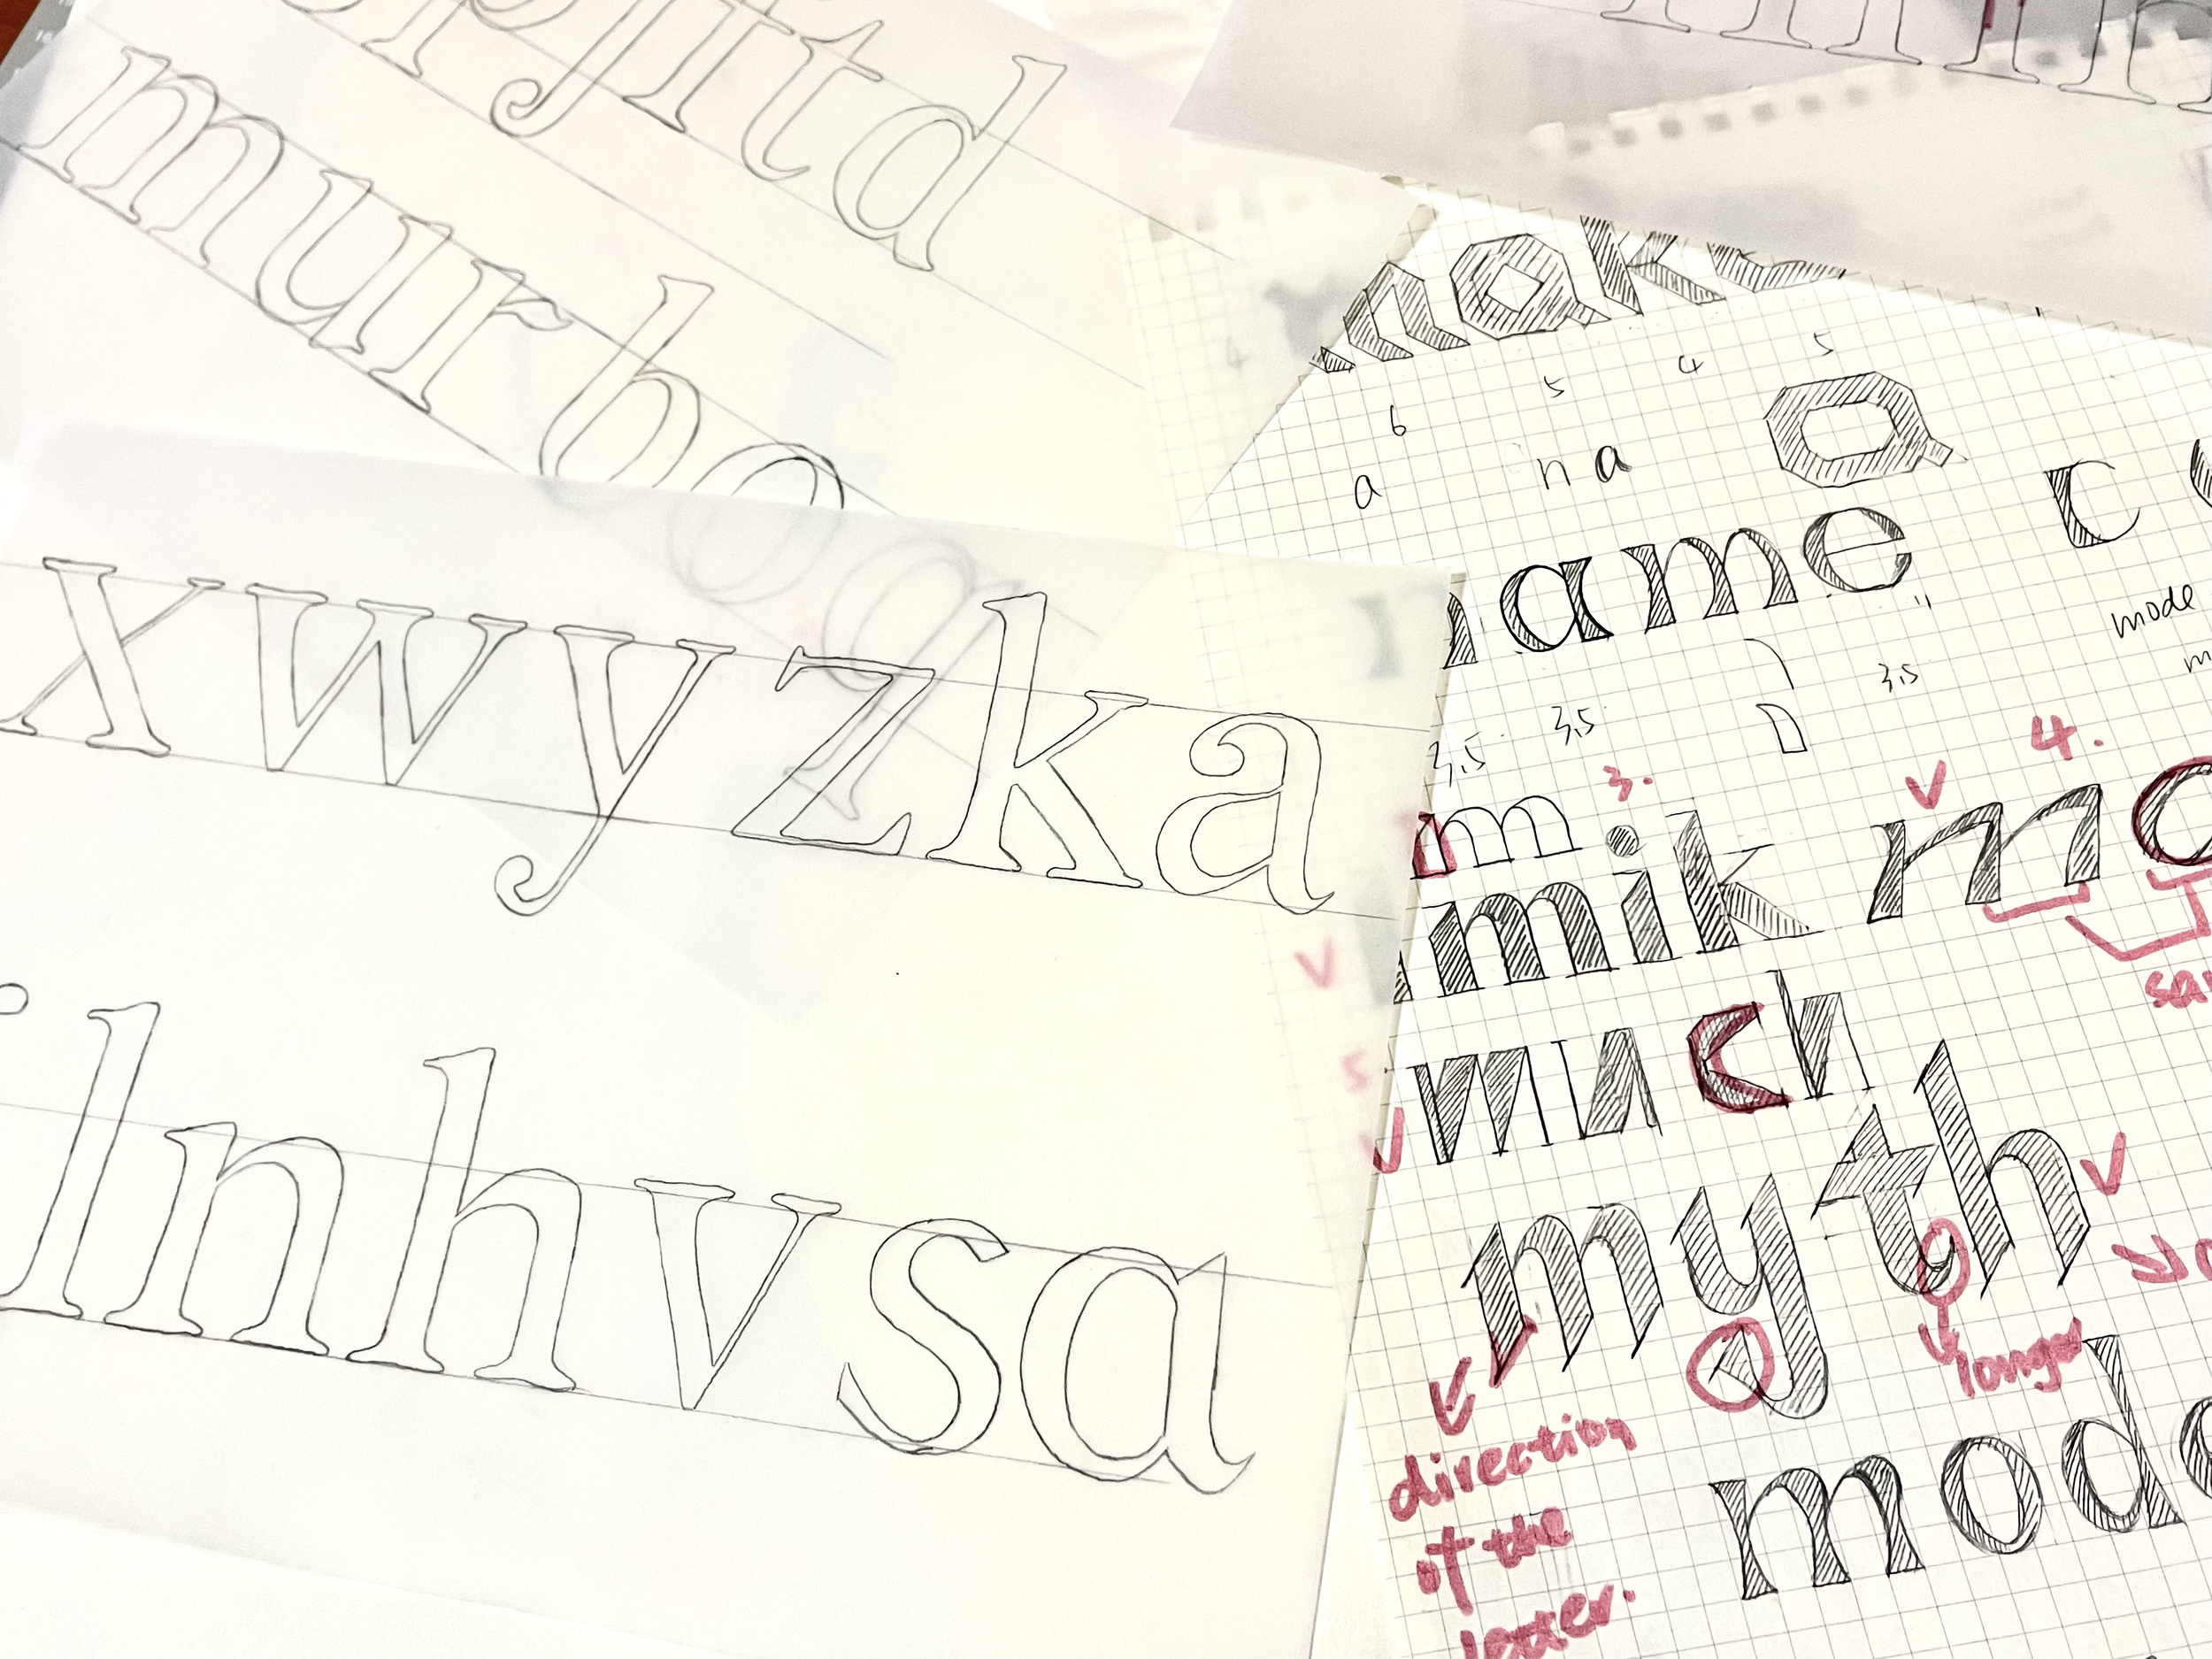 jltd
murbo
xwyzka
ilnhvsa
6 5 4 5
a n a a
ame
mode
3,5 3,5 3,5
3. 4.
m
mik m
much
myth
longer
direction
of the
letter.
mode